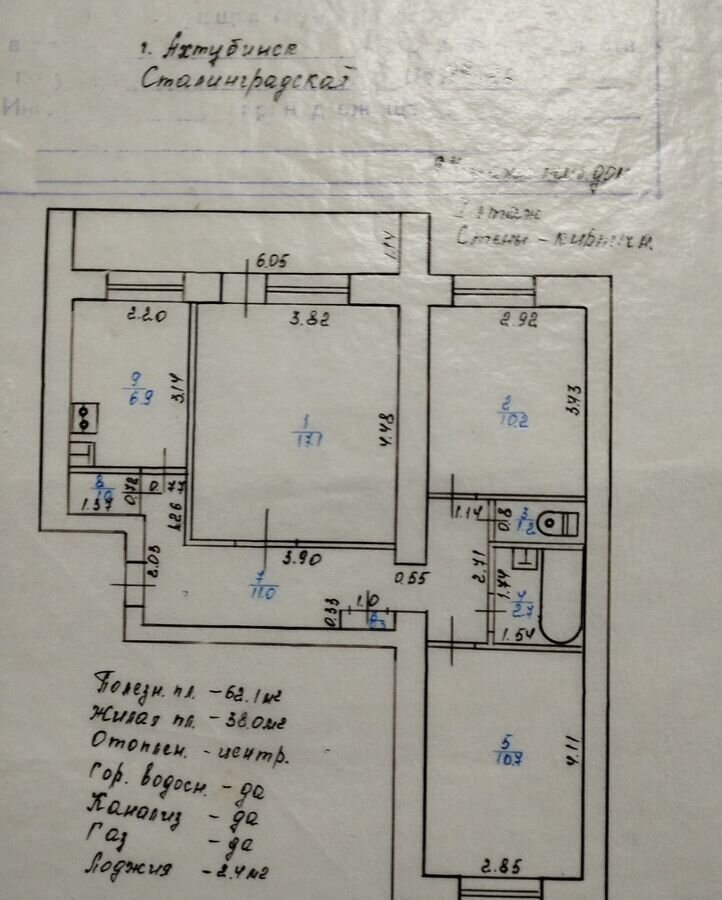 г. Ахтубинск
Сталинградская
дом
этаж
Стены - кирпичн.
6.05
1.14
2.20
3.82
2.92
9
6.9
3.14
1
17.1
4.48
2
10.2
3.43
8
1.0
0.72
1.37
1.26
1.14
0.8
3
1.2
2.03
3.90
7
11.0
0.55
2.71
1.74
4
2.7
1.54
0.33
1.0
6
0.3
5
10.7
4.11
2.85
Полезн. пл. - 62.1 м²
Жилая пл. - 38.0 м²
Отоплен. - центр.
Гор. водосн. - да
Канализ - да
Газ - да
Лоджия - 2.4 м²